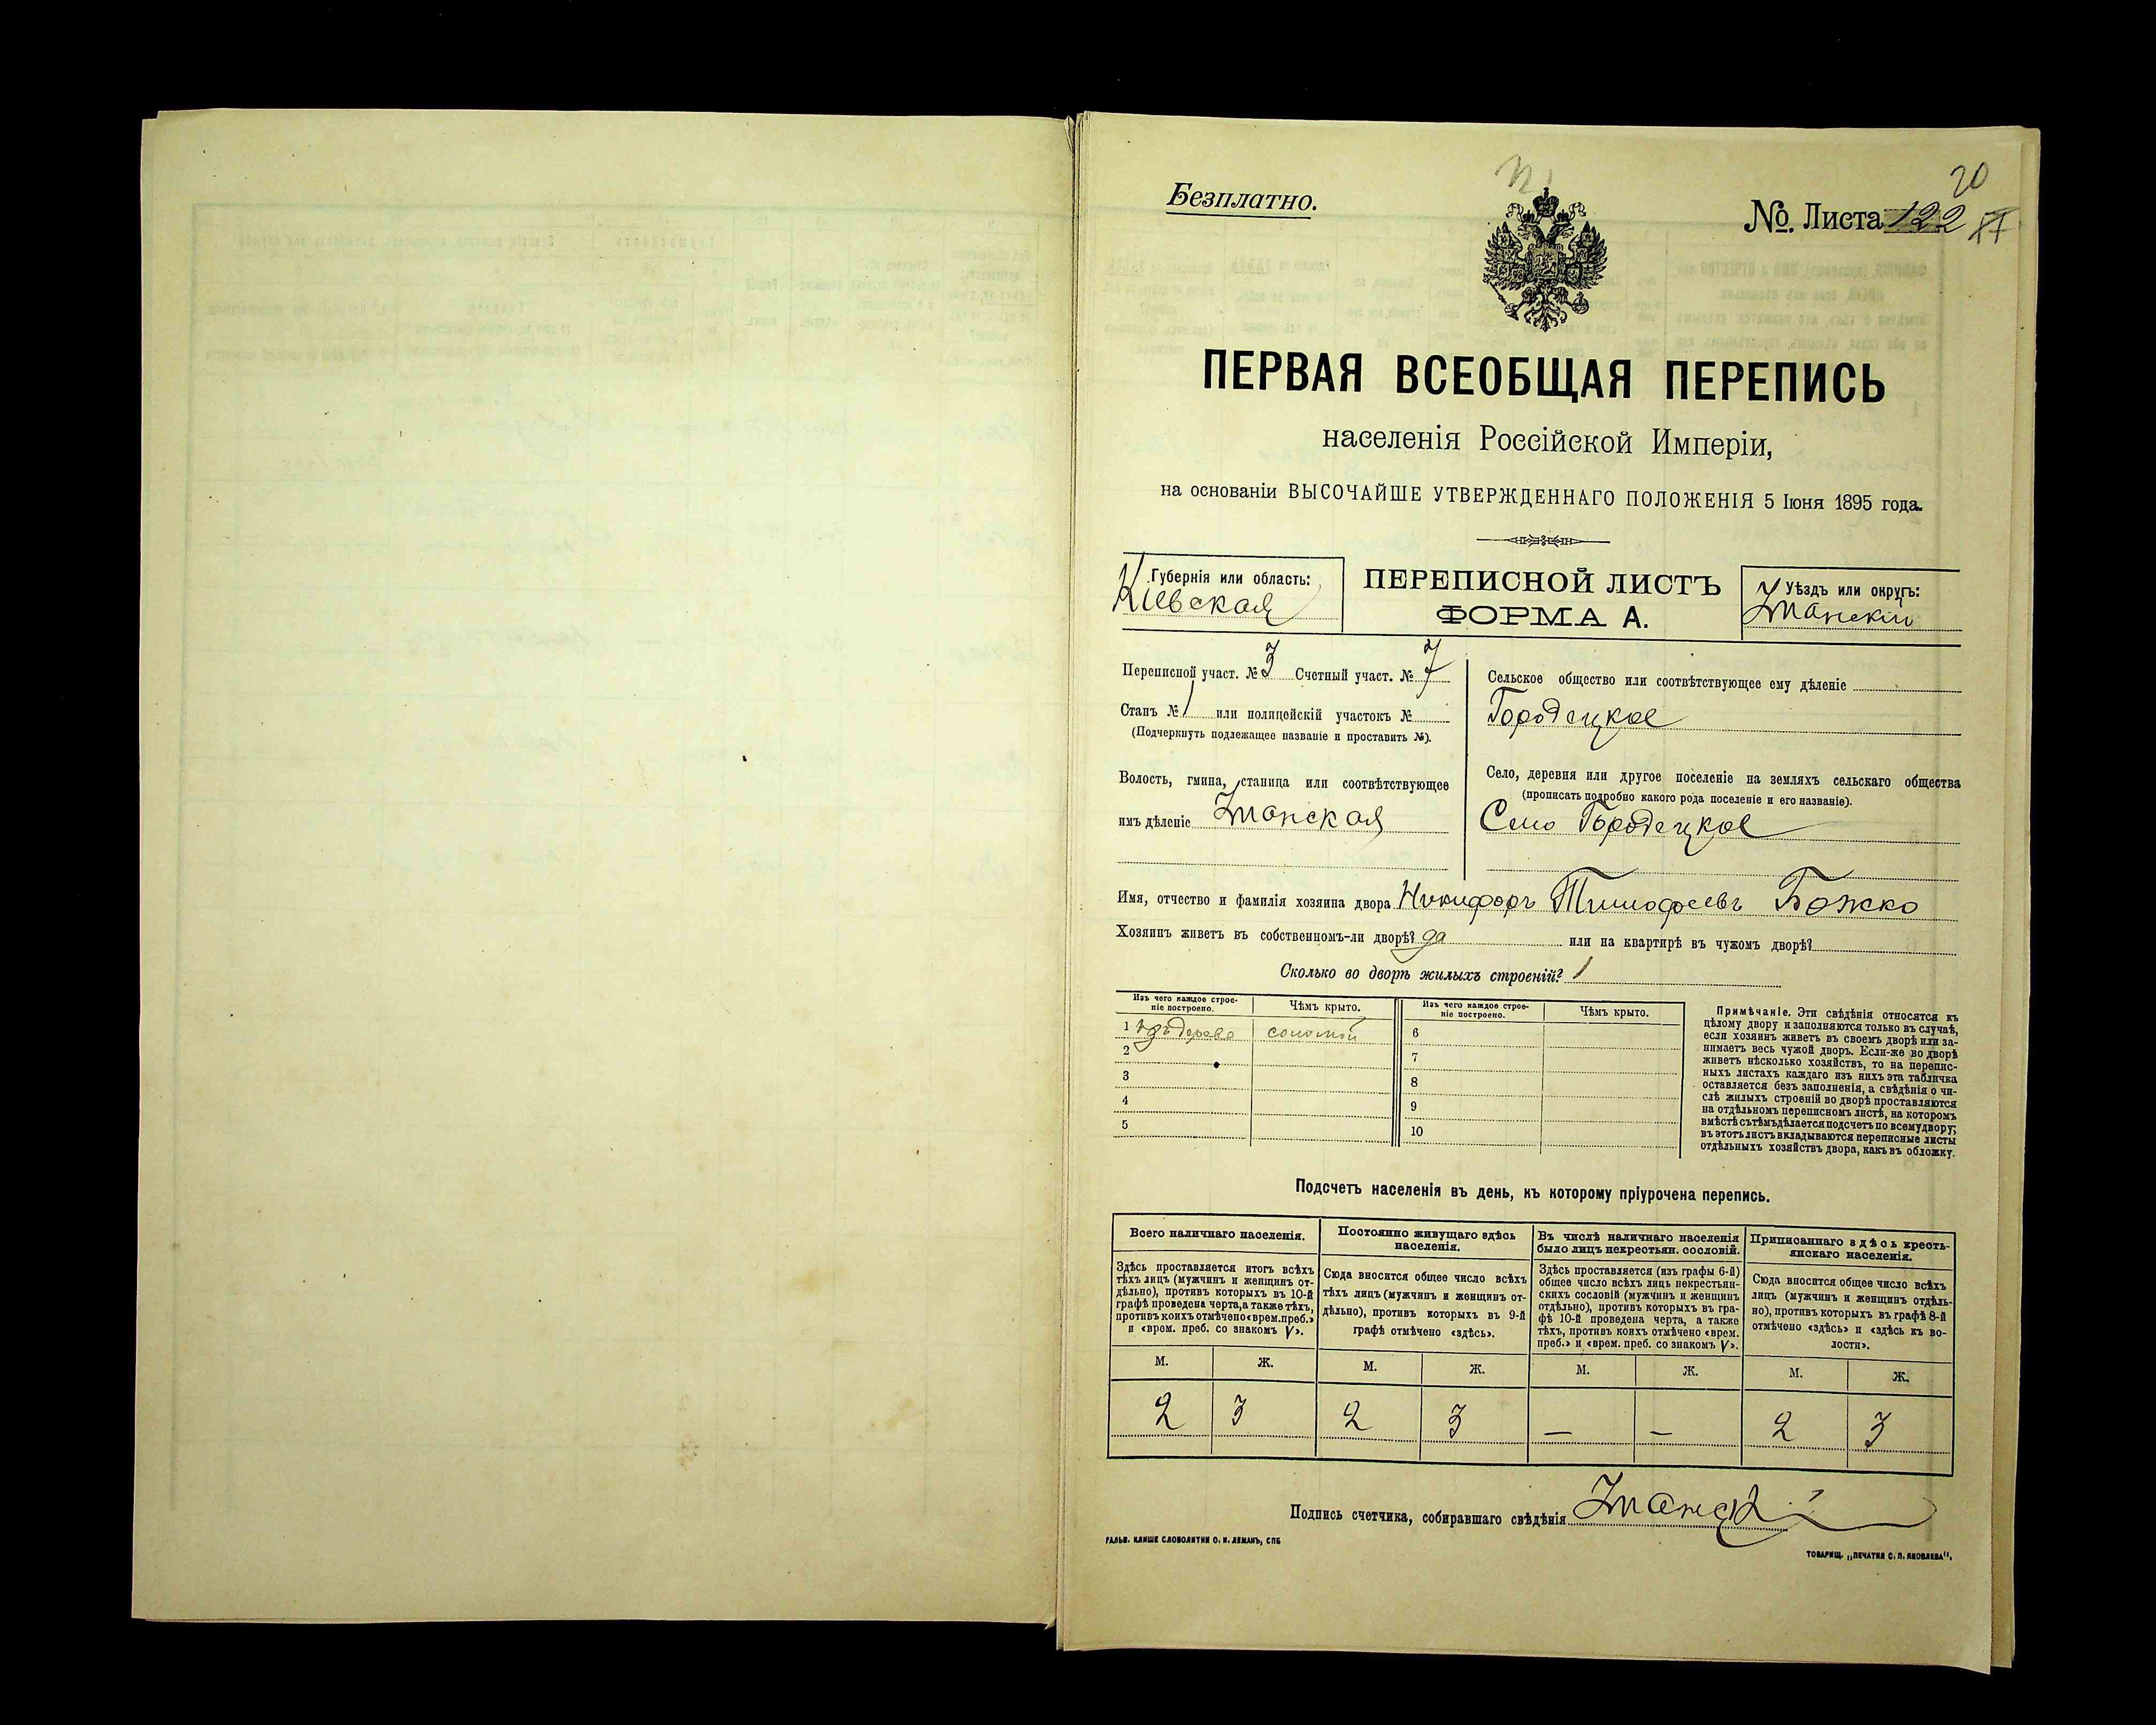 20
Безплатно.
№ Листа 122 87
ПЕРВАЯ ВСЕОБЩАЯ ПЕРЕПИСЬ
населенія Россійской Имперіи,
на основаніи ВЫСОЧАЙШЕ УТВЕРЖДЕННАГО ПОЛОЖЕНІЯ 5 Іюня 1895 года.
Губернія или область:
Кіевская
ПЕРЕПИСНОЙ ЛИСТЪ
ФОРМА А.
Уѣздъ или округъ:
Уманскій
Переписной участ. № 3 Счетный участ. № 7
Станъ № 1 или полицейскій участокъ №
(Подчеркнуть подлежащее названіе и проставить №).
Волость, гмина, станица или соотвѣтствующее
имъ дѣленіе Уманская
Сельское общество или соотвѣтствующее ему дѣленіе
Городецкое
Село, деревня или другое поселеніе на земляхъ сельскаго общества
(прописать подробно какого рода поселеніе и его названіе).
Село Городецкое
Имя, отчество и фамилія хозяина двора Никифоръ Тимофеевъ Божко
Хозяинъ живетъ въ собственномъ-ли дворѣ? да или на квартирѣ въ чужомъ дворѣ?
Сколько во дворѣ жилыхъ строеній? 1
Изъ чего каждое строе-
ніе построено.
Чѣмъ крыто.
Изъ чего каждое строе-
ніе построено.
Чѣмъ крыто.
1 изъ дерева соломой 6
2 7
3 8
4 9
5 10
Примѣчаніе. Эти свѣдѣнія относятся къ
цѣлому двору и заполняются только въ случаѣ,
если хозяинъ живетъ въ своемъ дворѣ или за-
нимаетъ весь чужой дворъ. Если-же во дворѣ
живетъ нѣсколько хозяйствъ, то на перепис-
ныхъ листахъ каждаго изъ нихъ эта табличка
оставляется безъ заполненія, а свѣдѣнія о чи-
слѣ жилыхъ строеній во дворѣ проставляются
на отдѣльномъ переписномъ листѣ, на которомъ
вмѣстѣ съ тѣмъ дѣлается подсчетъ по всему двору;
въ этотъ листъ вкладываются переписные листы
отдѣльныхъ хозяйствъ двора, какъ въ обложку.
Подсчетъ населенія въ день, къ которому пріурочена перепись.
Всего наличнаго населенія.
Здѣсь проставляется итогъ всѣхъ
тѣхъ лицъ (мужчинъ и женщинъ от-
дѣльно), противъ которыхъ въ 10-й
графѣ проведена черта, а также тѣхъ,
противъ коихъ отмѣчено «врем. преб.»
и «врем. преб. со знакомъ V».
Постоянно живущаго здѣсь
населенія.
Сюда вносится общее число всѣхъ
тѣхъ лицъ (мужчинъ и женщинъ от-
дѣльно), противъ которыхъ въ 9-й
графѣ отмѣчено «здѣсь».
Въ числѣ наличнаго населенія
было лицъ некрестьян. сословій.
Здѣсь проставляется (изъ графы 6-й)
общее число всѣхъ лицъ некрестьян-
скихъ сословій (мужчинъ и женщинъ
отдѣльно), противъ которыхъ въ гра-
фѣ 10-й проведена черта, а также
тѣхъ, противъ коихъ отмѣчено «врем.
преб.» и «врем. преб. со знакомъ V».
Приписаннаго здѣсь кресть-
янскаго населенія.
Сюда вносится общее число всѣхъ
лицъ (мужчинъ и женщинъ отдѣль-
но), противъ которыхъ въ графѣ 8-й
отмѣчено «здѣсь» и «здѣсь къ во-
лости».
М. Ж. М. Ж. М. Ж. М. Ж.
2 3 2 3 — — 2 3
Подпись счетчика, собиравшаго свѣдѣнія
ГАЛЬВ. КЛИШЕ СЛОВОЛИТНИ О. И. ЛЕМАНЪ, СПБ
ТОВАРИЩ. „ПЕЧАТНЯ С. П. ЯКОВЛЕВА".